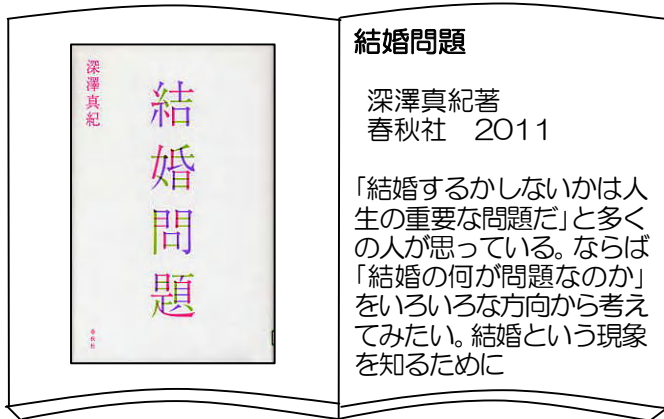 深澤真紀
結婚問題
春秋社
結婚問題
深澤真紀著
春秋社　2011
「結婚するかしないかは人
生の重要な問題だ」と多く
の人が思っている。ならば
「結婚の何が問題なのか」
をいろいろな方向から考え
てみたい。結婚という現象
を知るために